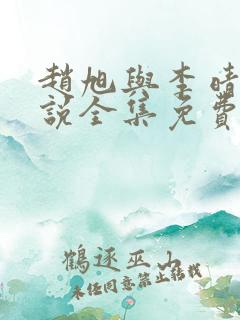 趙旭與李晴
說全集免費
鶴逐巫山
未經同意禁止轉載